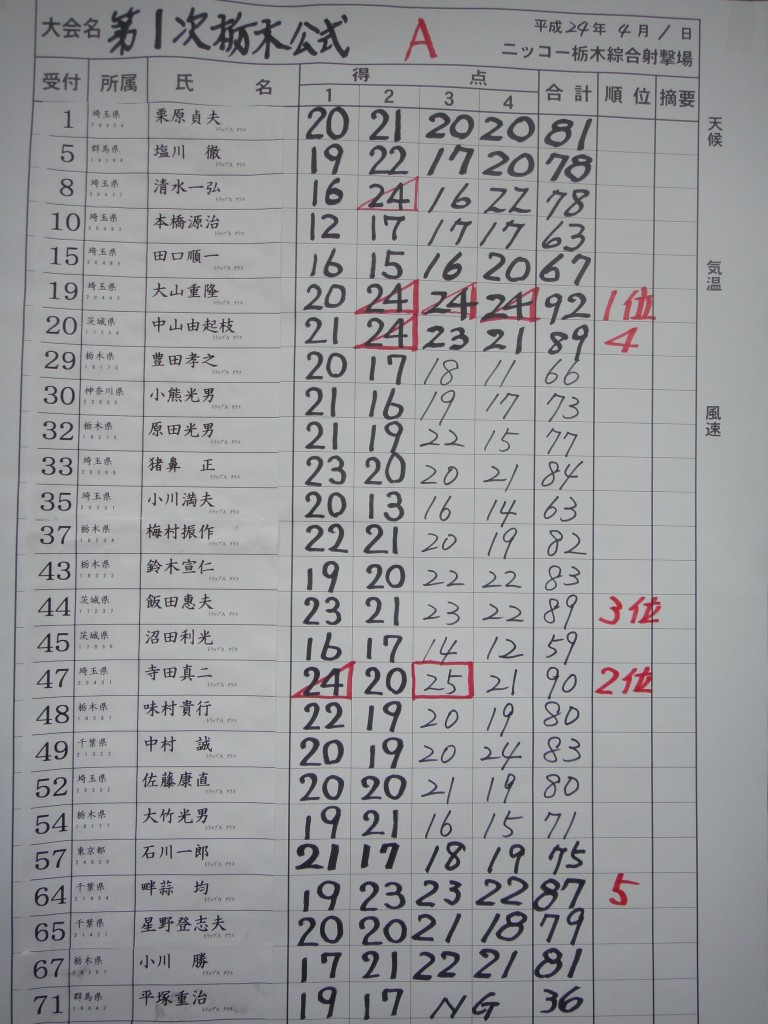 大会名 第1次栃木公式 A 平成24年4月1日
ニッコー栃木綜合射撃場
受付 所属 氏名 得点 合計 順位 摘要
1 2 3 4
1 埼玉県 栗原貞夫 20 21 20 20 81
5 群馬県 塩川 徹 19 22 17 20 78
8 埼玉県 清水一弘 16 24 16 22 78
10 埼玉県 本橋源治 12 17 17 17 63
15 埼玉県 田口順一 16 15 16 20 67
19 埼玉県 大山重隆 20 24 24 24 92 1位
20 茨城県 中山由起枝 21 24 23 21 89 4
29 栃木県 豊田孝之 20 17 18 11 66
30 神奈川県 小熊光男 21 16 19 17 73
32 栃木県 原田光男 21 19 22 15 77
33 埼玉県 猪鼻 正 23 20 20 21 84
35 埼玉県 小川満夫 20 13 16 14 63
37 栃木県 梅村振作 22 21 20 19 82
43 栃木県 鈴木宣仁 19 20 22 22 83
44 茨城県 飯田惠夫 23 21 23 22 89 3位
45 茨城県 沼田利光 16 17 14 12 59
47 埼玉県 寺田真二 24 20 25 21 90 2位
48 栃木県 味村貴行 22 19 20 19 80
49 千葉県 中村 誠 20 19 20 24 83
52 埼玉県 佐藤康直 20 20 21 19 80
54 栃木県 大竹光男 19 21 16 15 71
57 東京都 石川一郎 21 17 18 19 75
64 千葉県 畔蒜 均 19 23 23 22 87 5
65 千葉県 星野登志夫 20 20 21 18 79
67 栃木県 小川 勝 17 21 22 21 81
71 群馬県 平塚重治 19 17 NG 36
天候
気温
風速